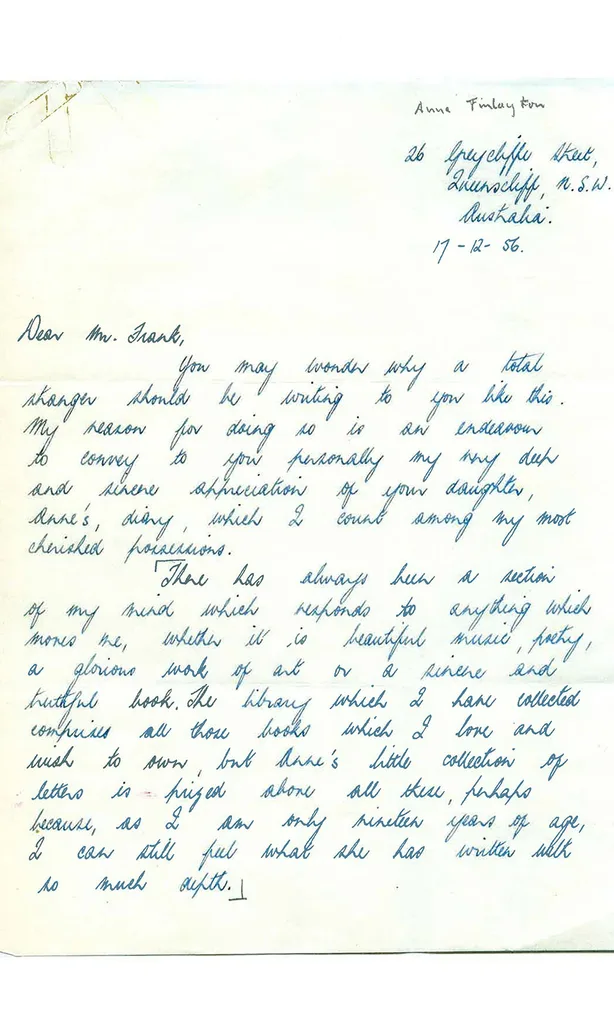 Anne Finlayson
26 Greycliffe Street,
Queenscliff, N.S.W.
Australia.
17-12-56.
Dear Mr. Frank,
You may wonder why a total
stranger should be writing to you like this.
My reason for doing so is an endeavour
to convey to you personally my very deep
and sincere appreciation of your daughter,
Anne's, diary, which I count among my most
cherished possessions.
There has always been a section
of my mind which responds to anything which
moves me, whether it is beautiful music, poetry,
a glorious work of art or a sincere and
truthful book. The library which I have collected
comprises all those books which I love and
wish to own, but Anne's little collection of
letters is prized above all these, perhaps
because, as I am only nineteen years of age,
I can still feel what she has written with
so much depth.